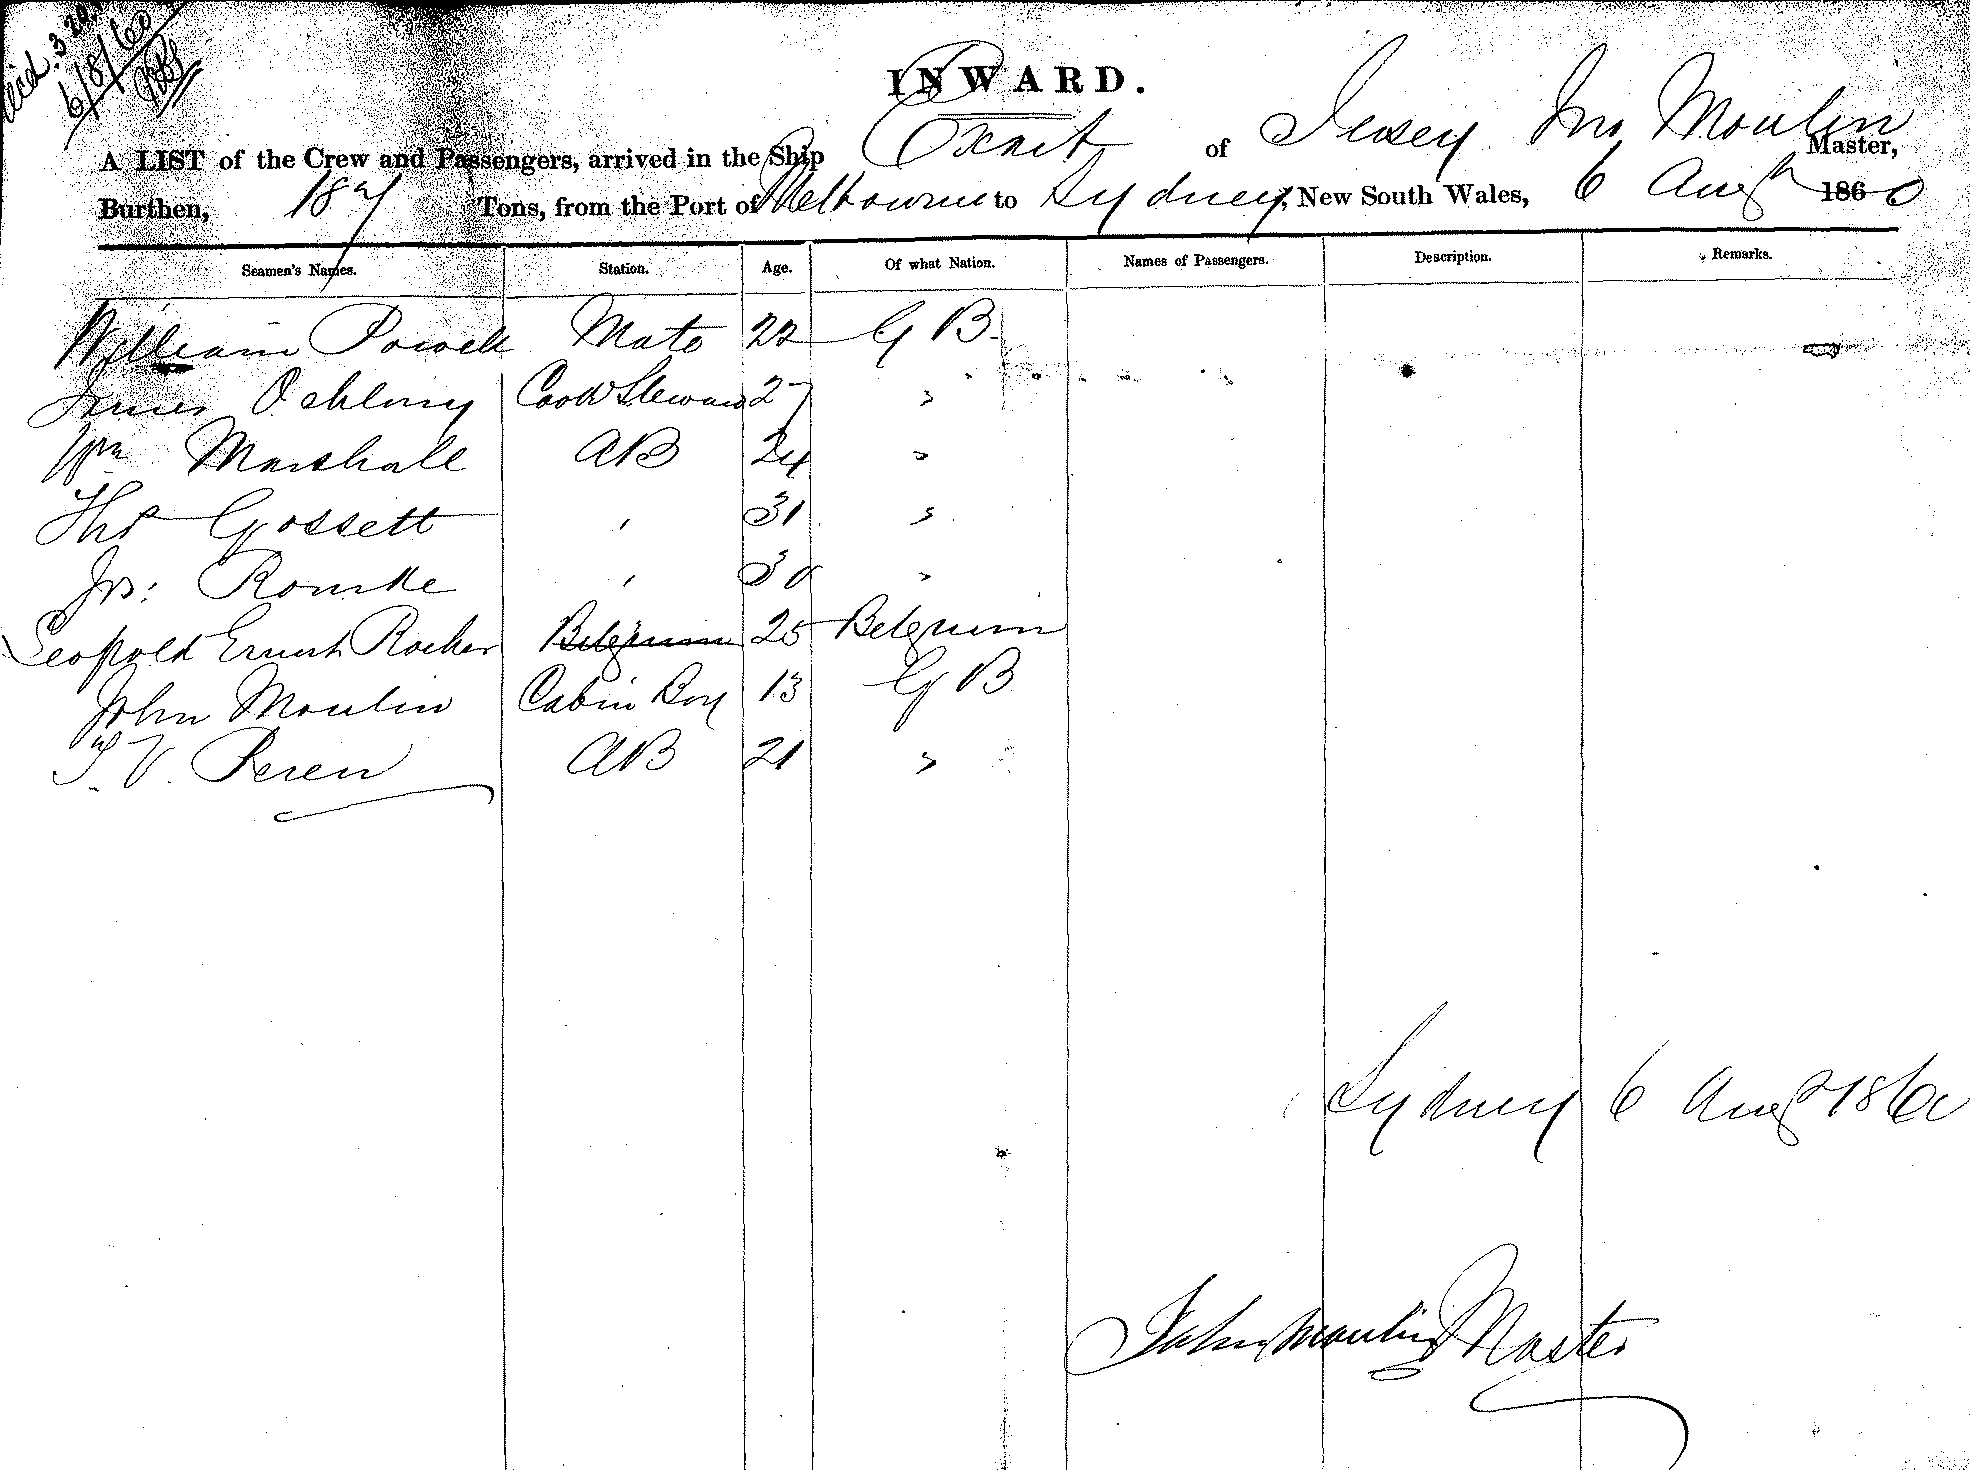 6/8/60
INWARD.
A LIST of the Crew and Passengers, arrived in the Ship Exact of Jersey Jno Moulin Master,
Burthen, 187 Tons, from the Port of Melbourne to Sydney, New South Wales, 6 Augt 1860
Seamen's Names. Station. Age. Of what Nation. Names of Passengers. Description. Remarks.
William Powell Mate 22 G B
James Cook Steward 27 "
Wm Marshall AB 24 "
Thos Gossett " 31 "
Jas: Rourke " 30 "
Leopold Ernest Belgium 25 Belgium
John Moulin Cabin Boy 13 G B
V. AB 21 "
Sydney 6 Aug 1860
John Moulin Master